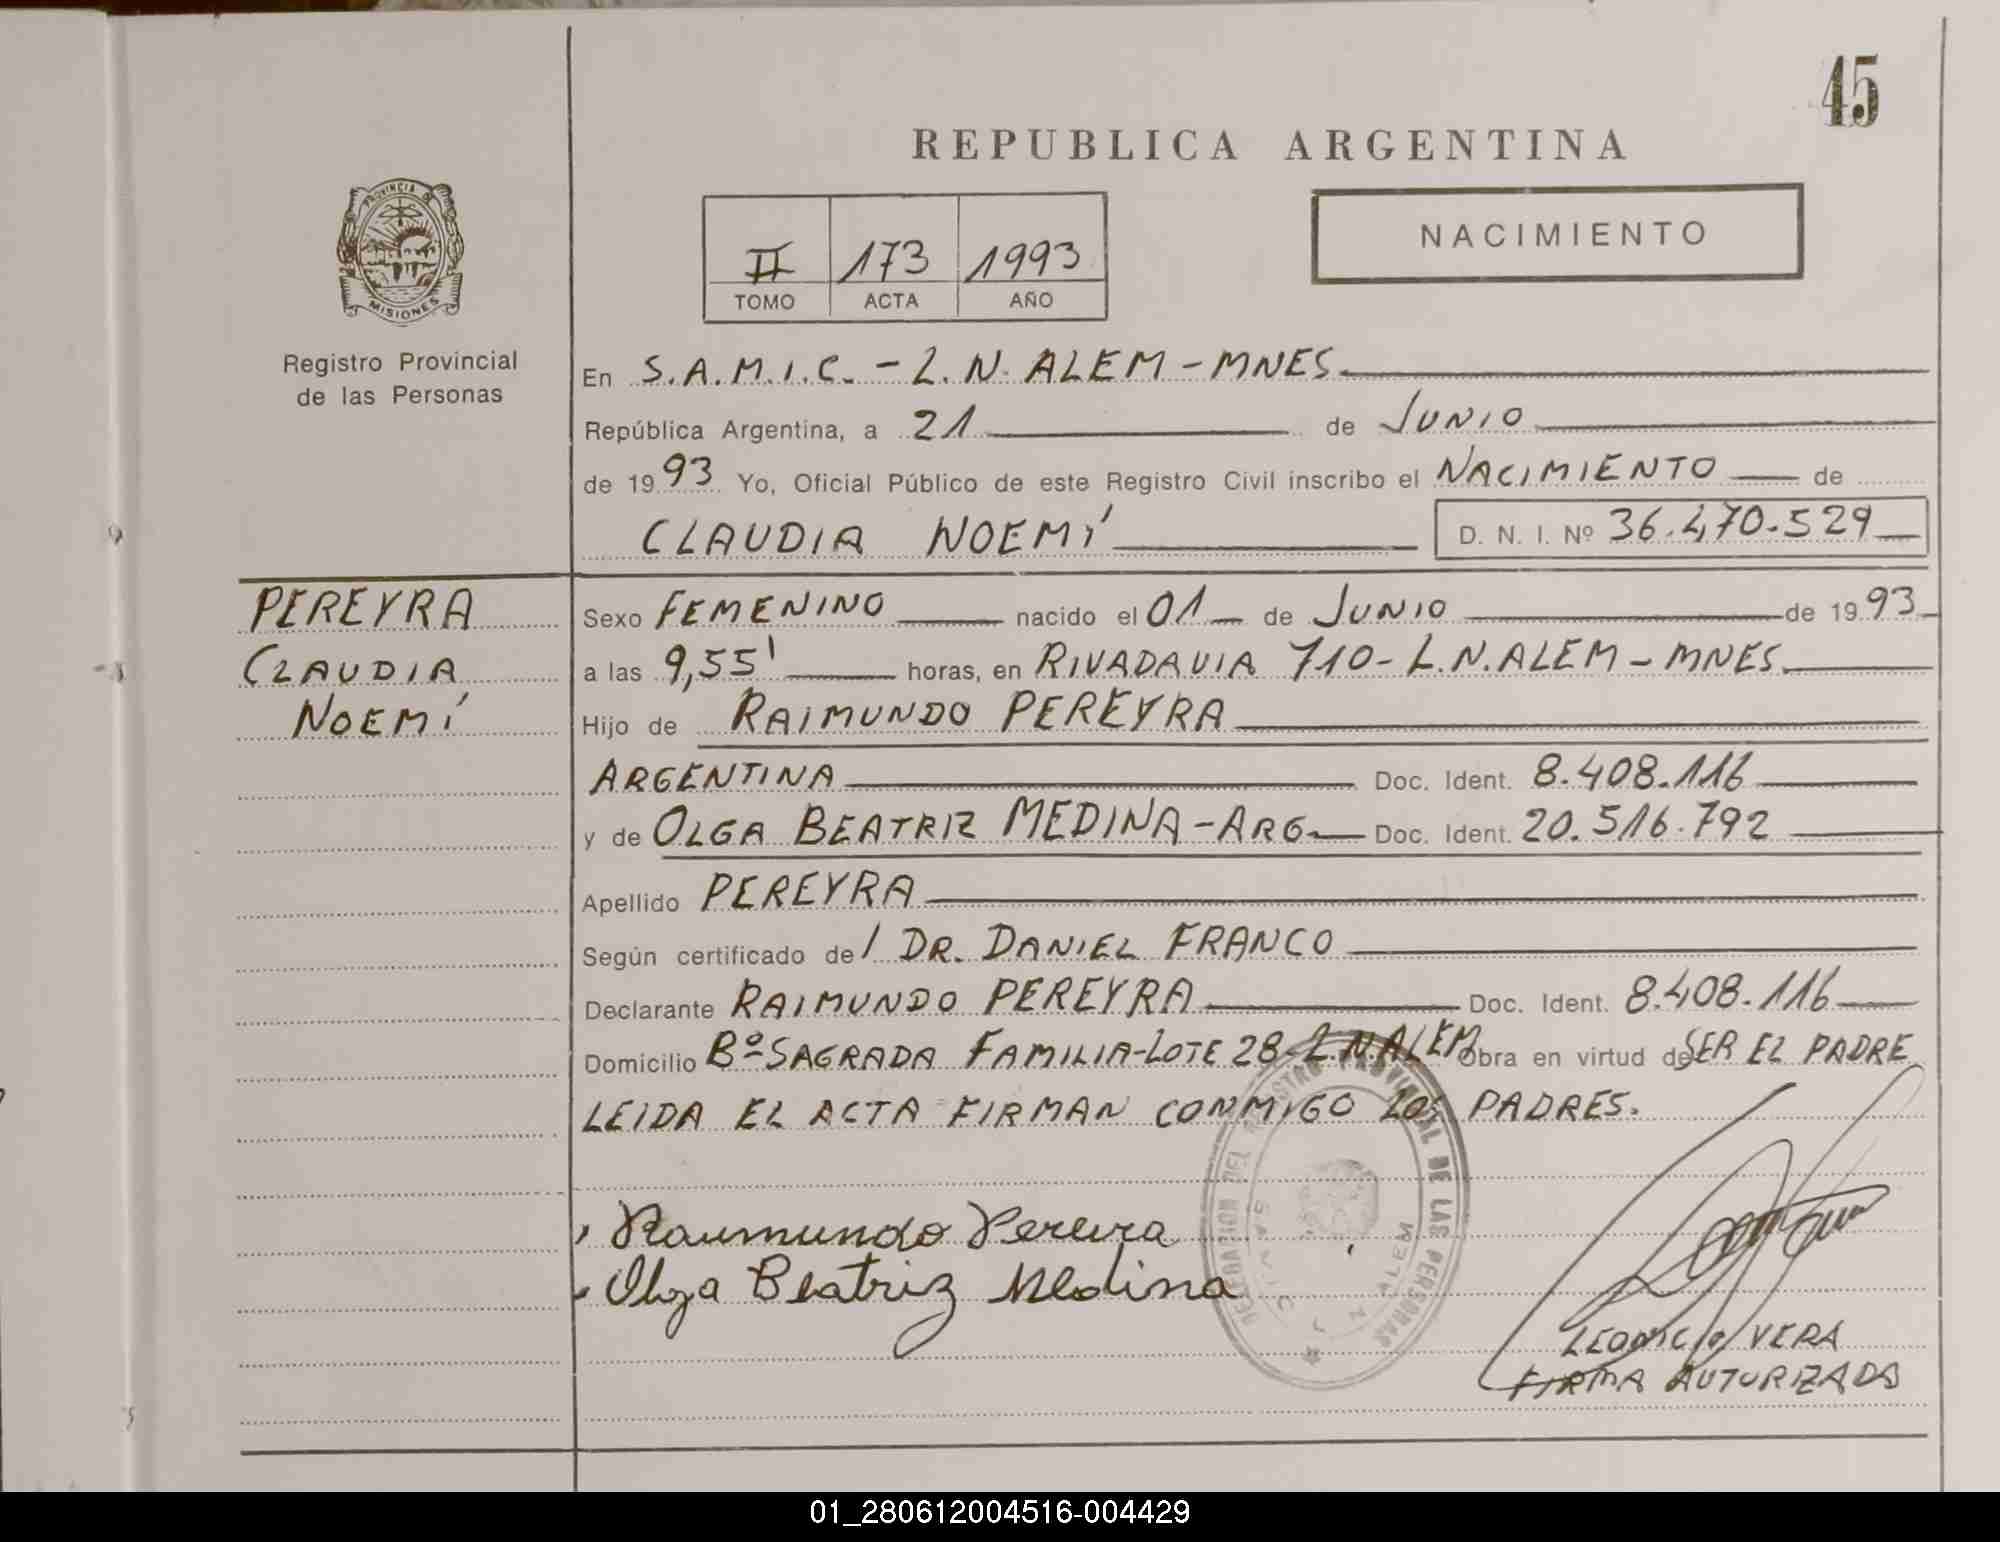 45
REPUBLICA ARGENTINA
NACIMIENTO
II 173 1993
TOMO ACTA AÑO
PROVINCIA
MISIONES
Registro Provincial
de las Personas
En S.A.M.I.C. - L.N. ALEM - MNES.
República Argentina, a 21 de JUNIO
de 1993 Yo, Oficial Público de este Registro Civil inscribo el NACIMIENTO de
CLAUDIA NOEMÍ D. N. I. Nº 36.470.529
PEREYRA
CLAUDIA
NOEMÍ
Sexo FEMENINO nacido el 01 de JUNIO de 1993
a las 9,55' horas, en RIVADAVIA 710 - L.N. ALEM - MNES.
Hijo de RAIMUNDO PEREYRA
ARGENTINA Doc. Ident. 8.408.116
y de OLGA BEATRIZ MEDINA - ARG. Doc. Ident. 20.516.792
Apellido PEREYRA
Según certificado de/ DR. DANIEL FRANCO
Declarante RAIMUNDO PEREYRA Doc. Ident. 8.408.116
Domicilio Bº SAGRADA FAMILIA - LOTE 28 - L.N. ALEM Obra en virtud de SER EL PADRE
LEIDA EL ACTA FIRMAN CONMIGO LOS PADRES.
Raimundo Pereira
Olga Beatriz Medina
DELEGACION DEL REGISTRO PROVINCIAL DE LAS PERSONAS
L N ALEM
LEONICIO VERA
FIRMA AUTORIZADA
01_280612004516-004429